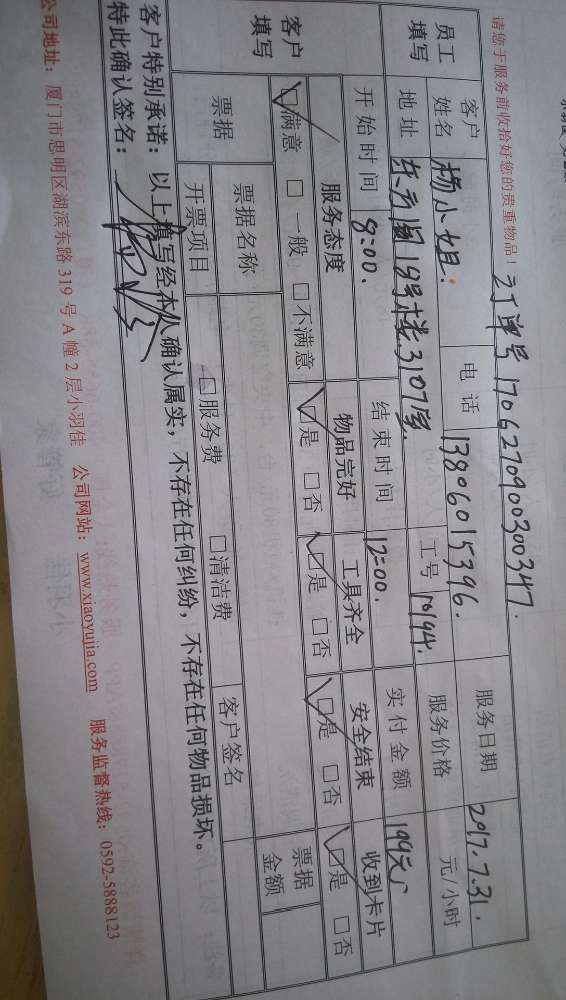 请您于服务前收拾好您的贵重物品！ 订单号 1706270900300347.
员工填写 客户姓名 杨小姐. 电话 13806015396. 服务日期 2017.7.31.
地址 东方园18号楼3107室 工号 服务价格 元/小时
开始时间 8:00. 结束时间 12:00. 实付金额 199元
客户填写 服务态度 物品完好 工具齐全 安全结束 收到卡片
☑满意 □一般 □不满意 ☑是 □否 ☑是 □否 ☑是 □否 ☑是 □否
票据 票据名称 客户签名 票据金额
开票项目 □服务费 □清洁费
客户特别承诺：以上填写经本人确认属实，不存在任何纠纷，不存在任何物品损坏。
特此确认签名：
公司地址：厦门市思明区湖滨东路 319 号 A 幢 2 层小羽佳 公司网站：www.xiaoyujia.com 服务监督热线：0592-5888123